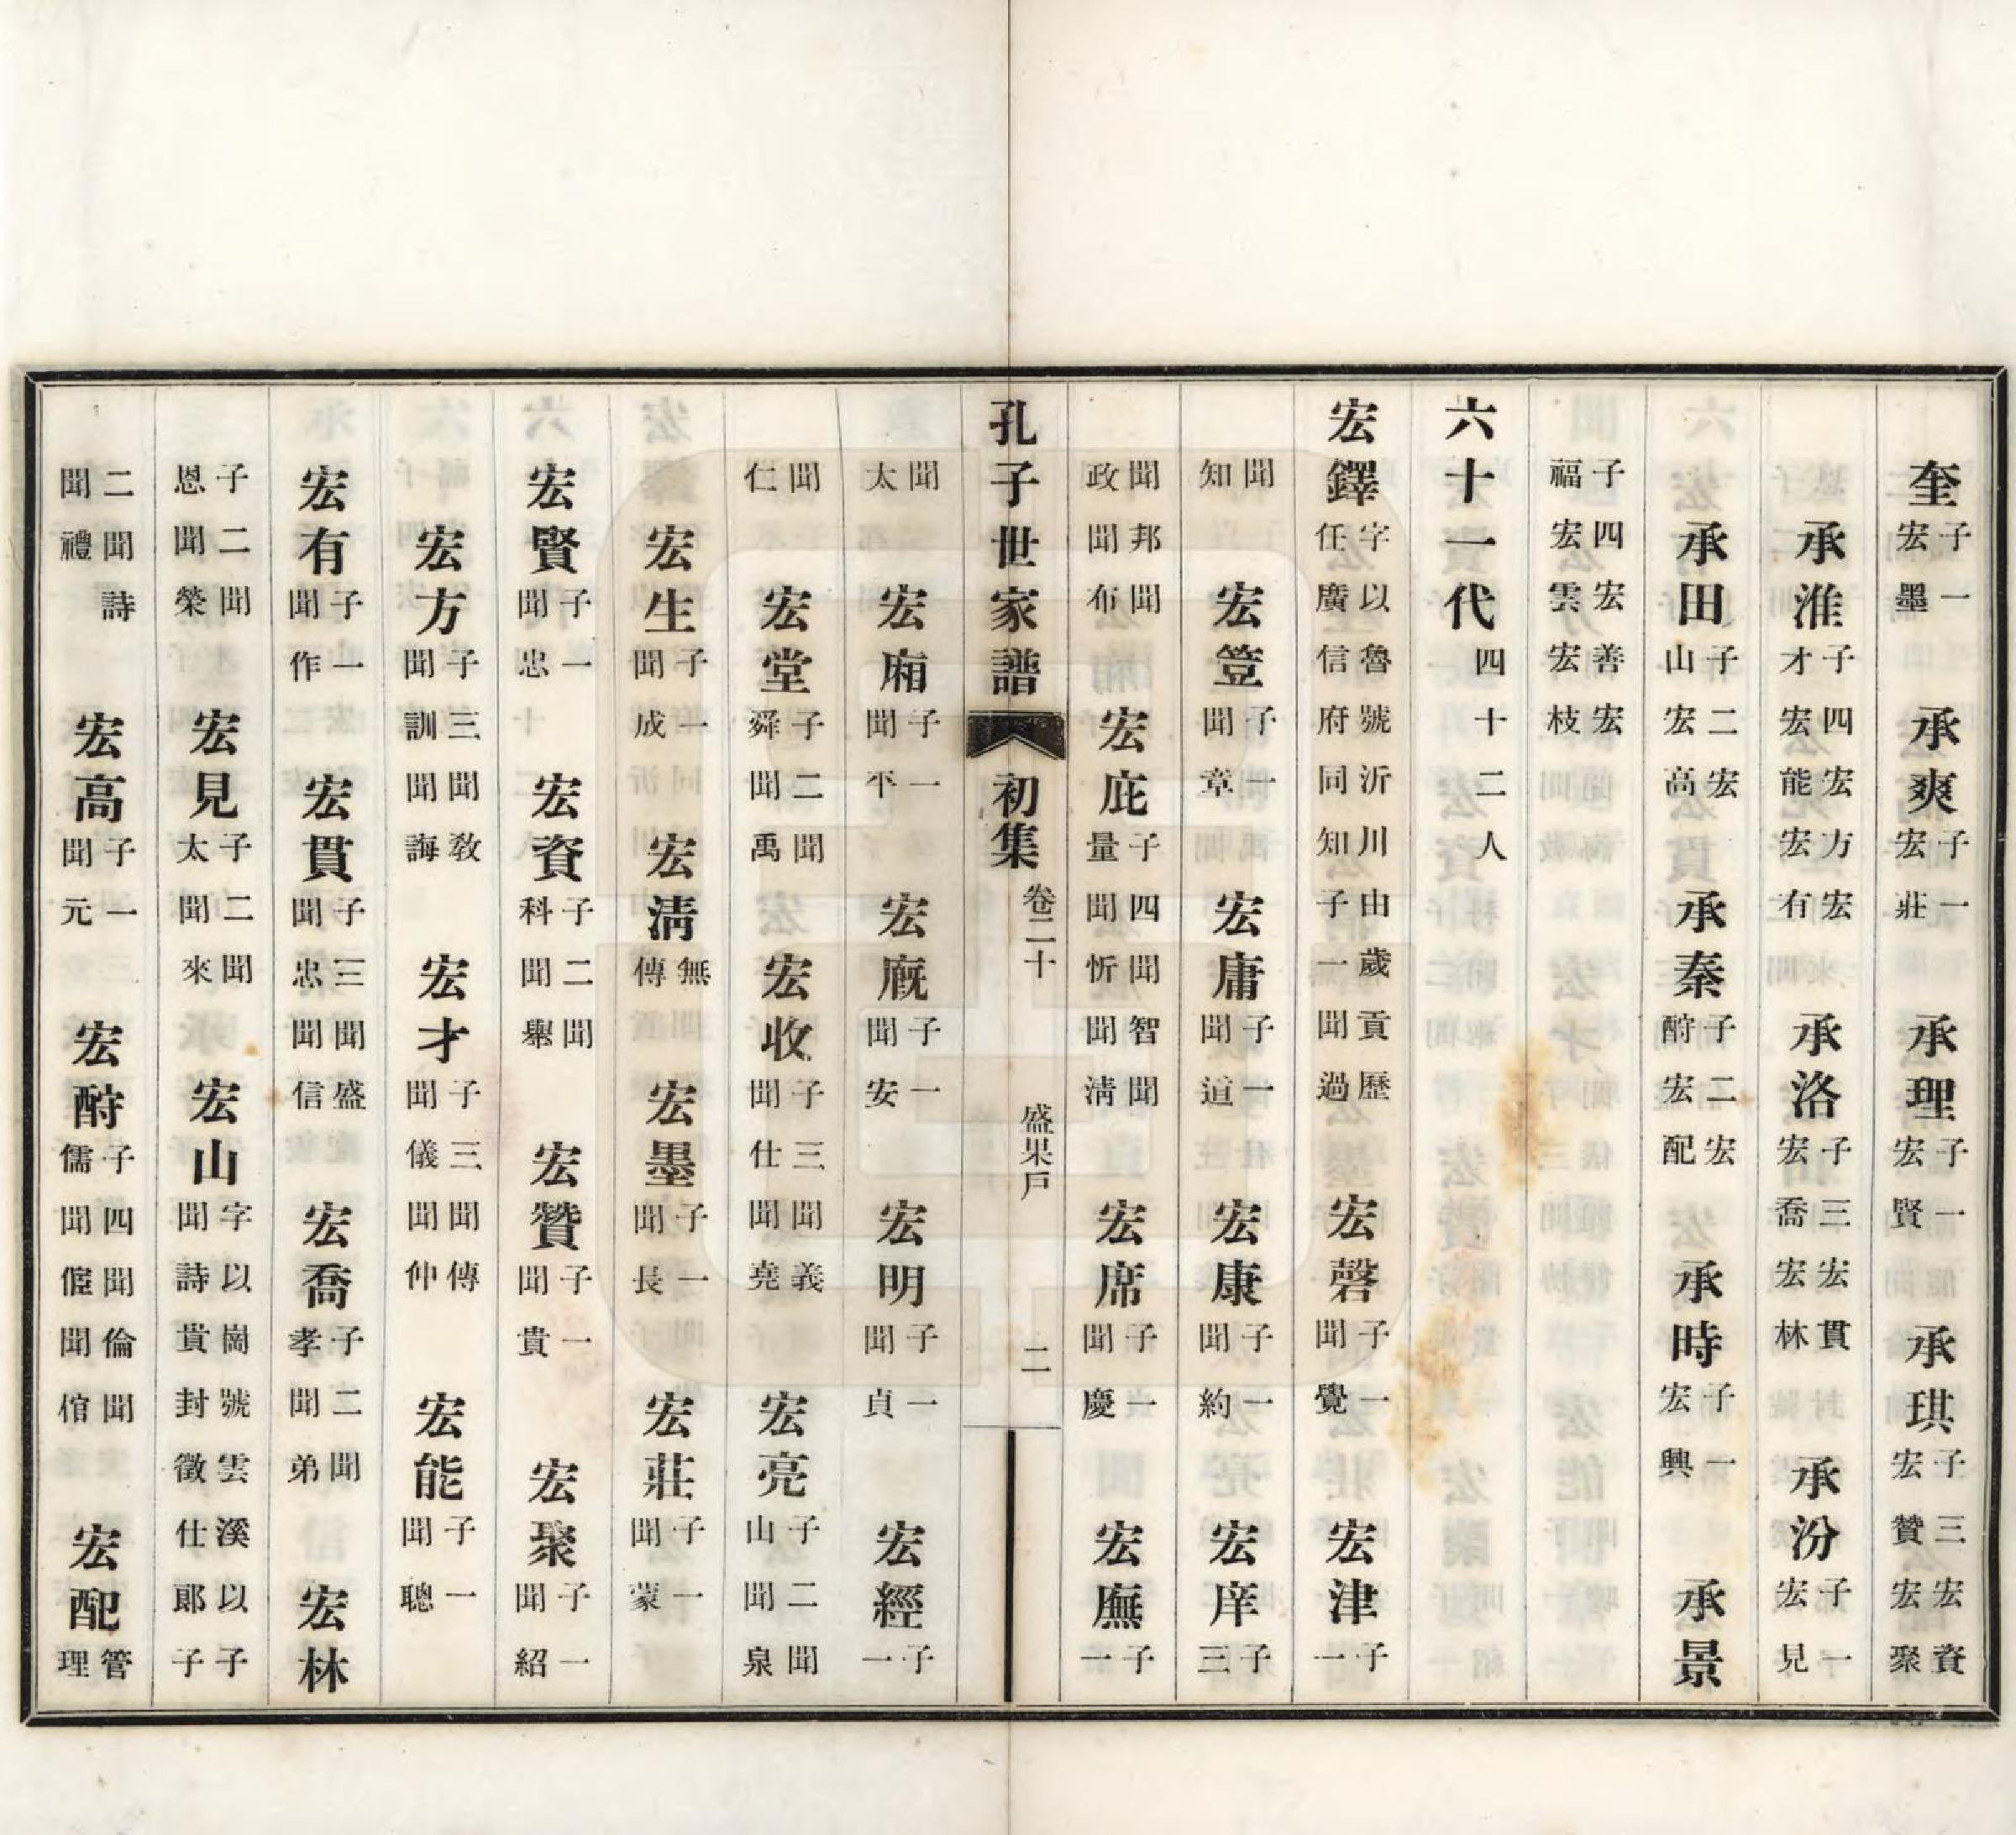 奎子一宏墨　承爽子一宏莊　承理子一宏賢　承琪子三宏資宏贊宏聚
承淮子四宏方宏才宏能宏有　承洛子三宏貫宏喬宏林　承汾子一宏見
承田子二宏山宏高　承秦子二宏酧宏配　承時子一宏興　承景
子四宏善宏福宏雲宏枝
六十一代四十二人
宏鐸字以魯號沂川由歲貢歷任廣信府同知子一聞過　宏磬子一聞覺　宏津子一
聞知　宏子一聞章　宏庸子一聞道　宏康子一聞約　宏庠子三
聞邦聞政聞布　宏庇子四聞智聞量聞忻聞淸　宏席子一聞慶　宏廡子一
孔子世家譜　初集　卷二十　盛果戶　二
聞太　宏廂子一聞平　宏廐子一聞安　宏明子一聞貞　宏經子一
聞仁　宏堂子二聞舜聞禹　宏收子三聞義聞仕聞堯　宏亮子二聞山聞泉
宏生子一聞成　宏淸無傳　宏墨子一聞長　宏莊子一聞蒙
宏賢子一聞忠　宏資子二聞科聞舉　宏贊子一聞貴　宏聚子一聞紹
宏方子三聞敎聞訓聞誨　宏才子三聞傳聞儀聞仲　宏能子一聞聰
宏有子一聞作　宏貫子三聞盛聞忠聞信　宏喬子二聞孝聞弟　宏林
子二聞恩聞榮　宏見子二聞太聞來　宏山字以崗號雲溪以子聞詩貴封徵仕郞子
二聞詩聞禮　宏高子一聞元　宏酧子四聞倫聞儒聞聞倌　宏配管理